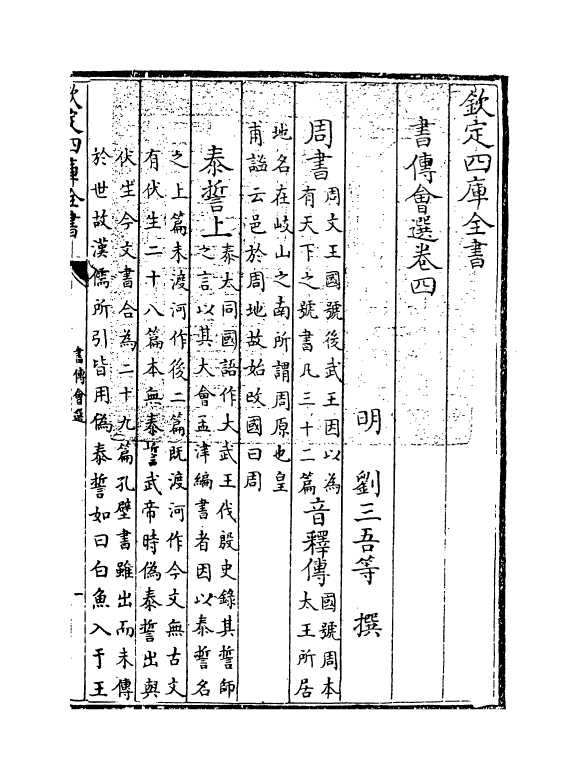 欽定四庫全書
書傳會選卷四
明 劉三吾等 撰
周書
周文王國號後武王因以為
有天下之號書凡三十二篇
音釋傳
國號周本
太王所居
地名在岐山之南所謂周原也皇
甫謐云邑於周地故始改國曰周
泰誓上
泰太同國語作大武王伐殷史錄其誓師
之言以其大會孟津編書者因以泰誓名
之上篇未渡河作後二篇既渡河作今文無古文
有伏生二十八篇本無泰誓武帝時偽泰誓出與
伏生今文書合為二十九篇孔壁書雖出而未傳
於世故漢儒所引皆用偽泰誓如曰白魚入于王
欽定四庫全書
書傳會選
一